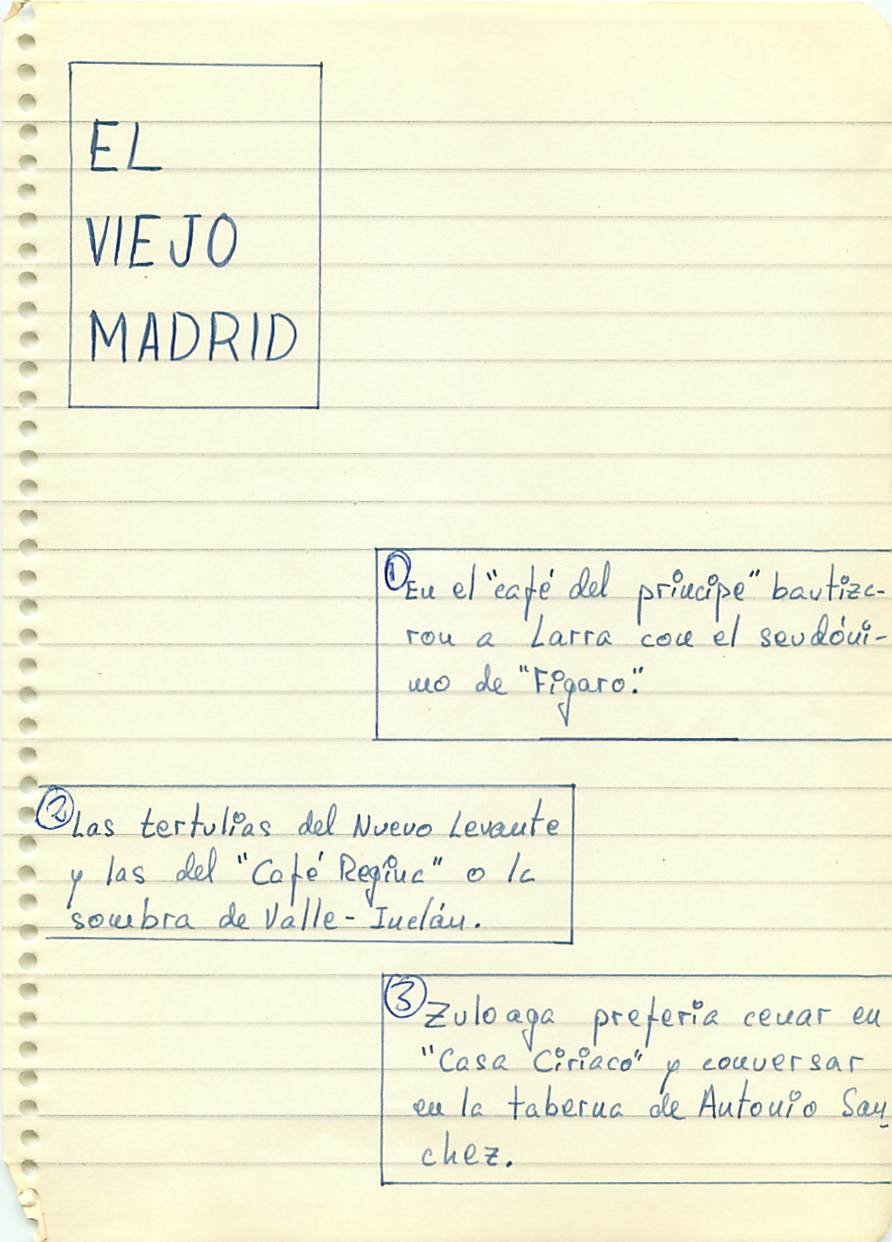 EL
VIEJO
MADRID
① En el "café del príncipe" bautiza-
ron a Larra con el seudóni-
mo de "Fígaro".
② Las tertulias del Nuevo Levante
y las del "Café Regina" o la
sombra de Valle-Inclán.
③ Zuloaga prefería cenar en
"Casa Ciriaco" y conversar
en la taberna de Antonio San
chez.